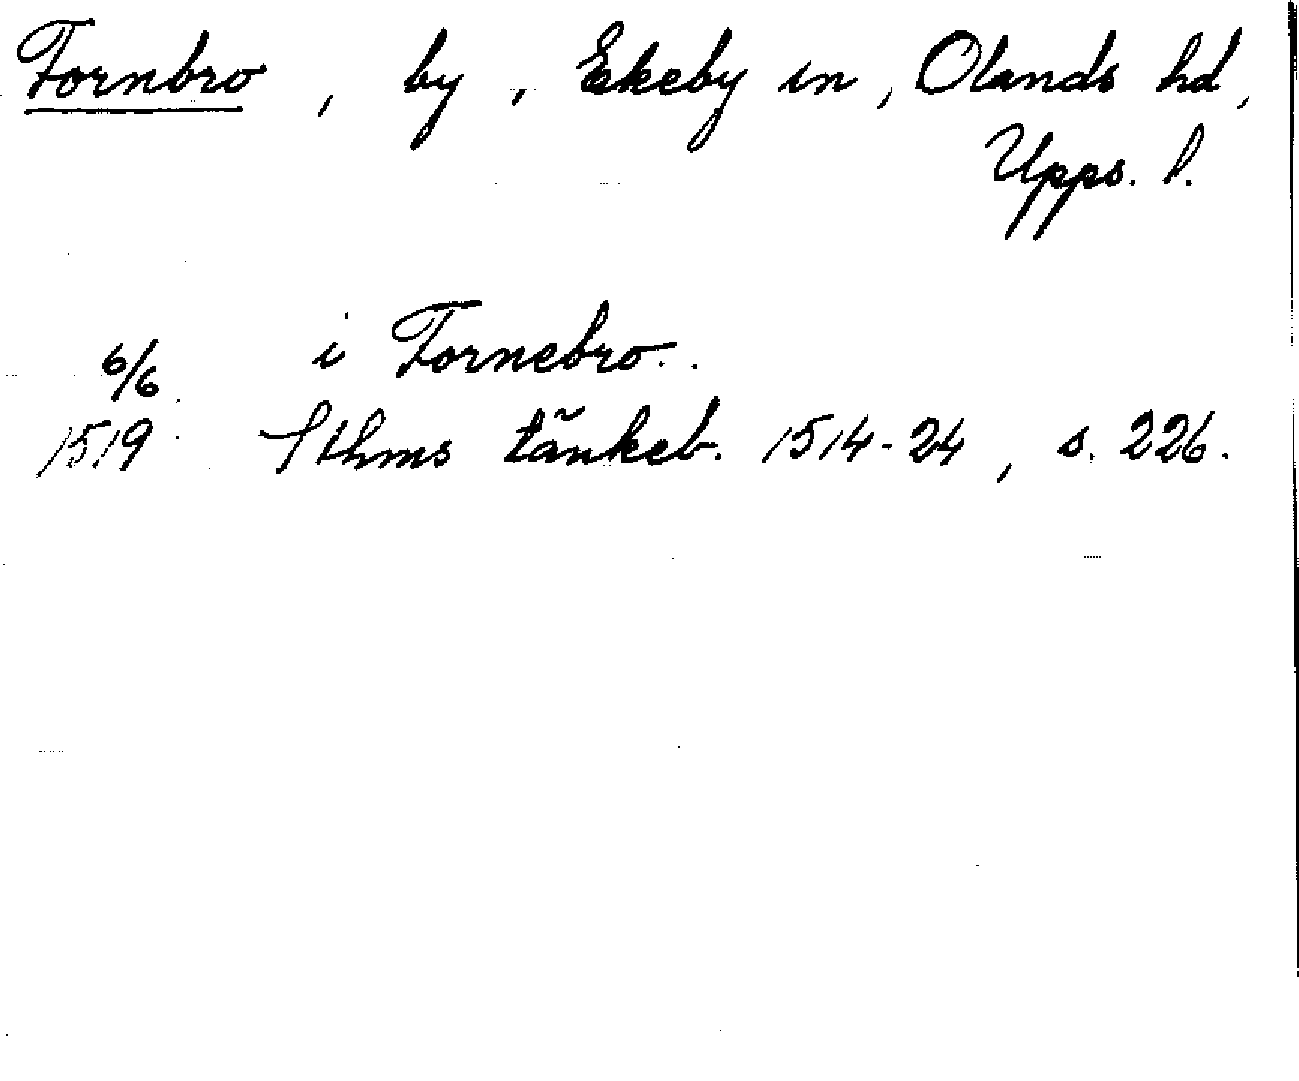 Fornbro, by, Ekeby sn, Olands hd,
Upps. l.
6/6 i Fornebro..
1519 Sthms tänkeb. 1514-24, s. 226.